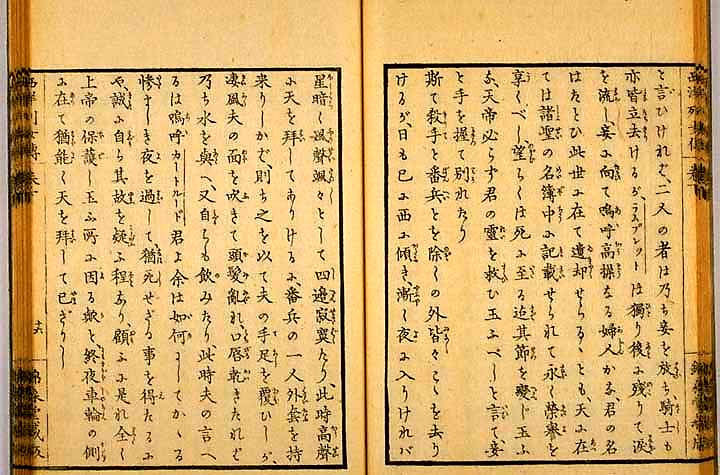 と言ひければ、二人の者は乃ち妾を放ち、騎士も
亦皆立去けるが、ラスプレットは獨り後に残りて涙
を流し妾に向て嗚呼高操なる婦人かな、君の名
はたとひ此世に在て遺却せらるゝとも、天に在
ては諸聖の名簿中に記載せられて永く榮譽を
享くべし、望らくは死に至る迄其節を變じ玉ふ
な、天帝必らず君の靈を救ひ玉ふべしと言て妾
と手を握て別れたり
斯て救手と番兵とを除くの外皆々こゝを去り
けるが、日も已に西に傾き漸く夜に入りければ
星暗く風聲颯々として四邊寂寞たり、此時高聲
に天を拜してありけるに、番兵の一人外套を持
来りしかば、則ち之を以て夫の手足を覆ひしが、
凄風夫の面を吹きて頭髮亂れ、口唇乾きたれば
乃ち水を與へ、又自らも飲みたり、此時夫の言へ
るは嗚呼カートルード君よ余は如何にしてかゝる
惨ましき夜を過して猶死せざる事を得たるに
や誠に自ら其故を疑ふ程なり、顧ふに是れ全く
上帝の保護し玉ふ所に因る歟と終夜車輪の側
に在て猶能く天を拜して已ざりし